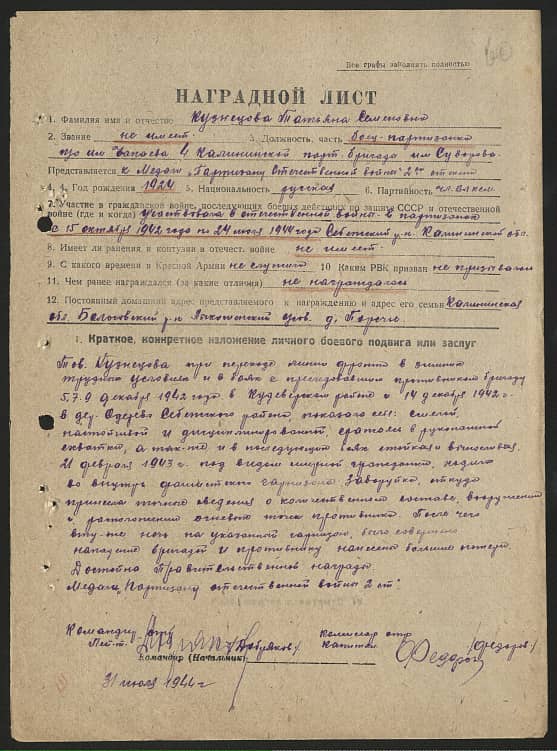 Все графы заполнять полностью
НАГРАДНОЙ ЛИСТ
1. Фамилия имя и отчество Кузнецова Татьяна Семеновна
2. Звание не имеет 3. Должность, часть боец-партизанка
п/о им Чапаева 4 Калининской парт. бригады им Суворова
Представляется к Медали "Партизану Отечественной войны" 2ой степени
4. Год рождения 1924 5. Национальность русская 6. Партийность чл. ВЛКСМ
7. Участие в гражданской войне, последующих боевых действиях по защите СССР и отечественной
войне (где и когда) участвовала в отечественной войне в партизанах
с 15 октября 1942 года по 24 июля 1944 года Себежский р-н Калининской обл.
8. Имеет ли ранения и контузии в отечест. войне не имеет
9. С какого времени в Красной Армии не служит 10 Каким РВК призван не призывался
11. Чем ранее награждался (за какие отличия) не награждалась
12. Постоянный домашний адрес представляемого к награждению и адрес его семьи Калининская
обл. Бологовский р-н с/сов. д. Поречье
I. Краткое, конкретное изложение личного боевого подвига или заслуг
Тов. Кузнецова при переходе линии фронта в зимних
трудных условиях и в боях с преследовавшим противником бригаду
5.7.9 декабря 1942 года в Кудеверском районе и 14 декабря 1942 г.
в дер. Себежского района, показала себя: смелой,
настойчивой и дисциплинированной, сражаясь в рукопашной
схватке, а так-же и в последующих боях стойкая и выносливая.
11 февраля 1943 г. под видом мирной гражданки, ходила
во внутрь фашистского гарнизона Заворуйка, откуда
принесла точные сведения о количественном составе, вооружении
и расположении огневых точек противника. После чего
в эту-же ночь на указанный гарнизон, было совершено
нападение бригадой и противнику нанесены большие потери.
Достойна Правительственной награды
Медали "Партизану отечественной войны 2 ст."
Командир отр. Комиссар отр.
Лейт. /Добряков/ Капитан /Федоров/
Командир (Начальник)
31 июля 1944 г